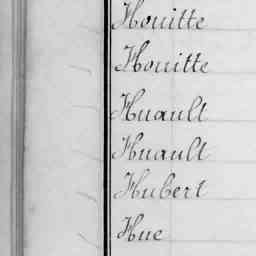 Houitte
Houitte
Huault
Huault
Hubert
Hue